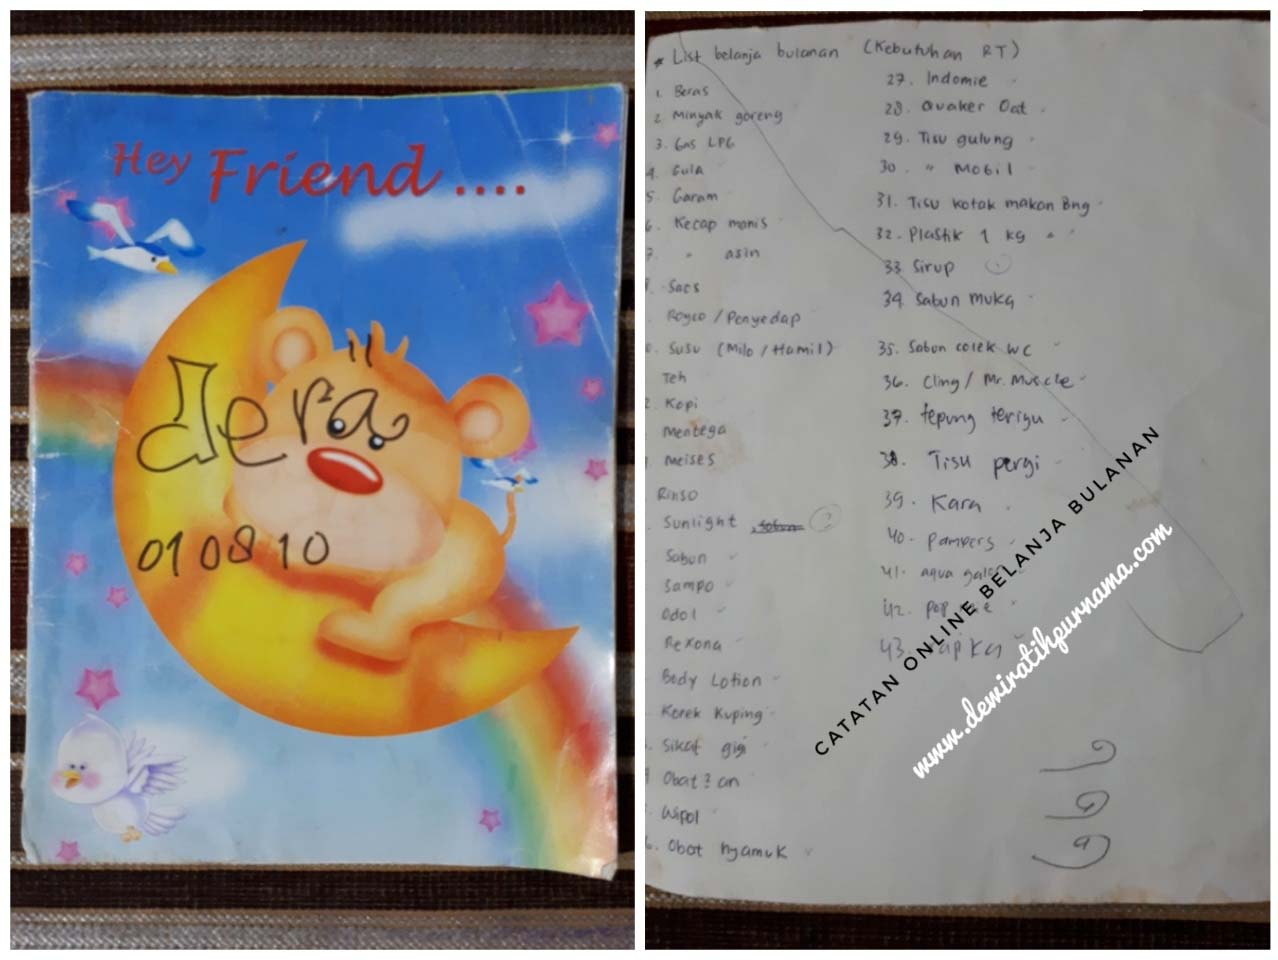 Hey Friend ....
dera
010810
* List belanja bulanan (Kebutuhan RT)
1. Beras
2. Minyak goreng
3. Gas LPG
4. Gula
5. Garam
6. Kecap manis
7. " asin
Saos
Royco / Penyedap
Susu (Milo / Hamil)
Teh
2. Kopi
Mentega
Meises
Rinso
Sunlight sabun ?
Sabun
Sampo
Odol
Rexona
Body Lotion
Korek Kuping
Sikat gigi
Obat2an
Wipol
6. Obat nyamuk
27. Indomie
28. Quaker Oat
29. Tisu gulung
30. " Mobil
31. Tisu kotak makan Bng
32. Plastik 1 kg
33. Sirup
34. Sabun muka
35. Sabun colek WC
36. Cling / Mr. Muscle
37. tepung terigu
38. Tisu pergi
39. Kara
40. pampers
41. aqua galon
42.
43.
CATATAN ONLINE BELANJA BULANAN
www.dewiratihpurnama.com